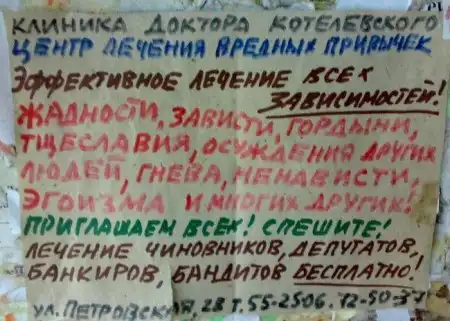 КЛИНИКА ДОКТОРА КОТЕЛЕВСКОГО
ЦЕНТР ЛЕЧЕНИЯ ВРЕДНЫХ ПРИВЫЧЕК
ЭФФЕКТИВНОЕ ЛЕЧЕНИЕ ВСЕХ
ЗАВИСИМОСТЕЙ!
ЖАДНОСТИ, ЗАВИСТИ, ГОРДЫНИ,
ТЩЕСЛАВИЯ, ОСУЖДЕНИЯ ДРУГИХ
ЛЮДЕЙ, ГНЕВА, НЕНАВИСТИ,
ЭГОИЗМА И МНОГИХ ДРУГИХ!
ПРИГЛАШАЕМ ВСЕХ! СПЕШИТЕ!
ЛЕЧЕНИЕ ЧИНОВНИКОВ, ДЕПУТАТОВ,
БАНКИРОВ, БАНДИТОВ БЕСПЛАТНО!
УЛ. ПЕТРОВСКАЯ, 28 Т. 55-2506. 72-50-37